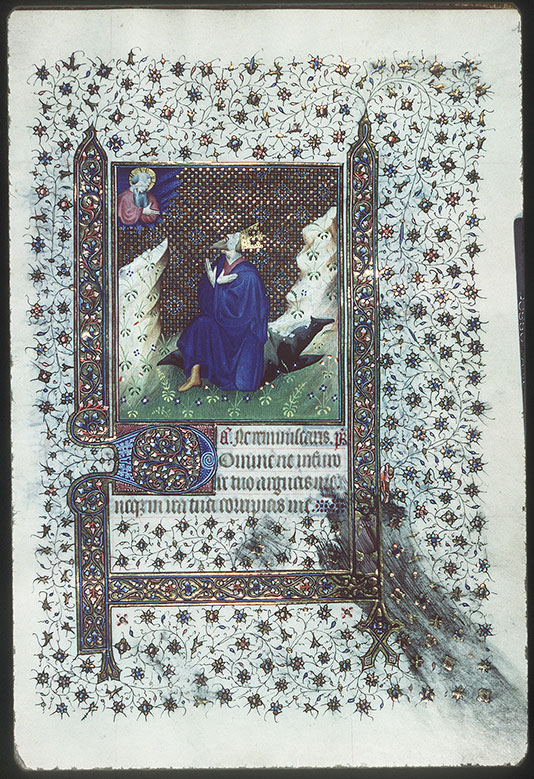 añ. Ne reminiscaris. ps̄
Domine ne in furo
re tuo arguas me
neqz in ira tua corripias me